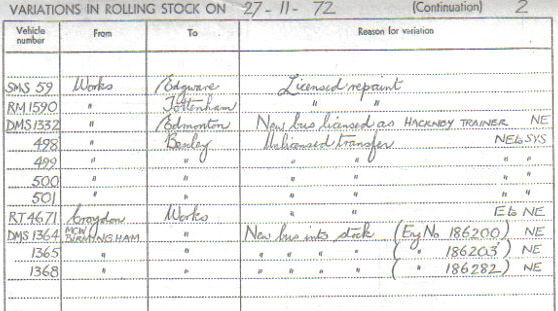 VARIATIONS IN ROLLING STOCK ON 27-11-72 (Continuation) 2
Vehicle number From To Reason for variation
SMS 59 Works Edgware Licensed repaint
RM 1590 " Tottenham " "
DMS 1332 " Edmonton New bus licensed as HACKNEY TRAINER NE
498 " Bexley Unlicensed transfer NE to SYS
499 " " " " " "
500 " " " " " "
501 " " " " " "
RT 4671 Croydon Works " " E to NE
DMS 1364 MCW BIRMINGHAM " New bus into stock (Eng No 186200) NE
1365 " " " " " " ( " 186203) NE
1368 " " " " " " ( " 186282) NE